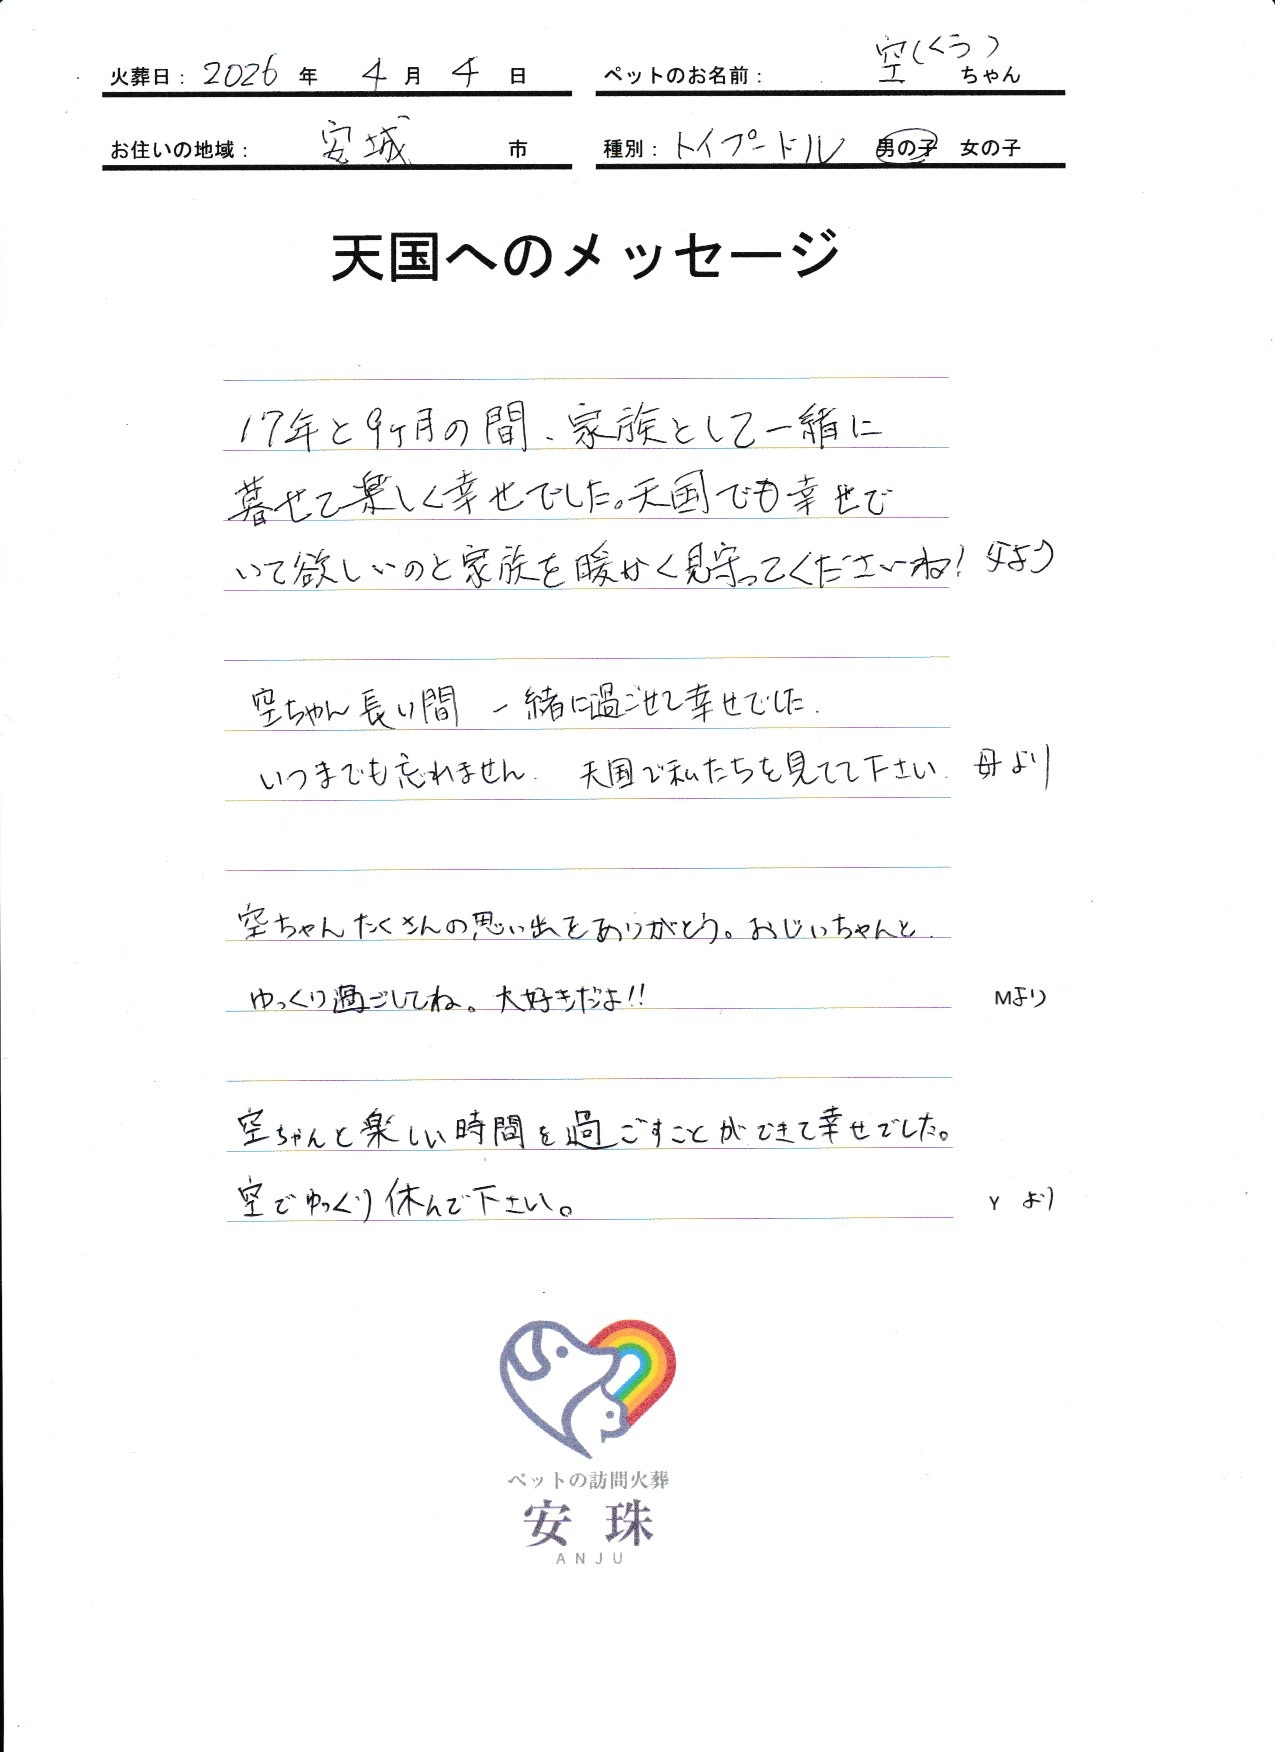 火葬日： 2026 年 4 月 4 日
ペットのお名前： 空(くう) ちゃん
お住いの地域： 安城 市
種別： トイプードル 男の子 女の子
天国へのメッセージ
17年と9ヶ月の間、家族として一緒に
暮せて楽しく幸せでした。天国でも幸せで
いて欲しいのと家族を暖かく見守ってくださいね! 父より
空ちゃん長い間 一緒に過ごせて幸せでした.
いつまでも忘れません. 天国で私たちを見てて下さい. 母より
空ちゃんたくさんの思い出をありがとう。おじいちゃんと
ゆっくり過ごしてね。大好きだよ!! Mより
空ちゃんと楽しい時間を過ごすことができて幸せでした。
空でゆっくり休んで下さい。 Y より
ペットの訪問火葬
安珠
ANJU